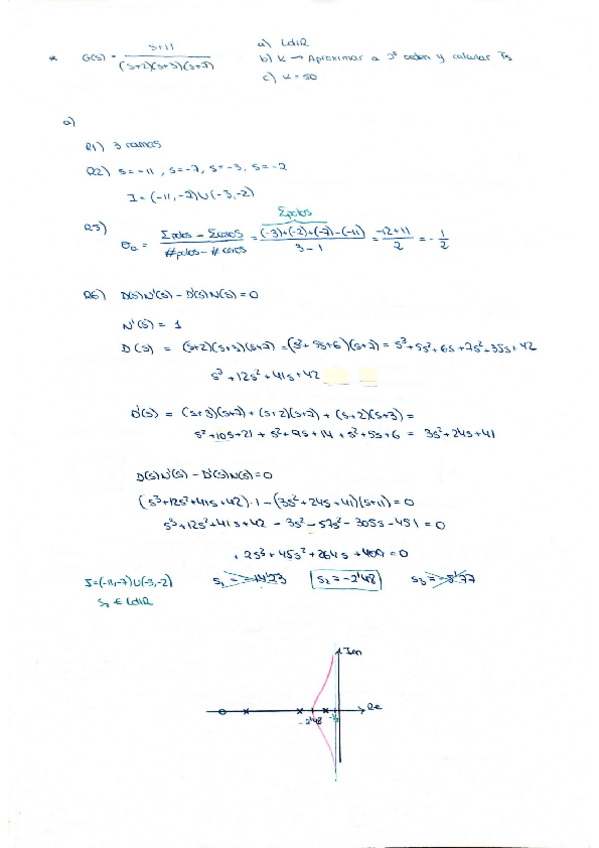 * G(s) = s+11 / (s+2)(s+3)(s+7)
a) LdlR
b) K → Aproximar a 3º orden y calcular Ts
c) K = 50
a)
R1) 3 ramas
R2) s=-11, s=-7, s=-3, s=-2
I = (-11,-7)∪(-3,-2)
R5) σa = Σpolos - Σceros / #polos - #ceros = (-3)+(-2)+(-7)-(-11) / 3-1 = -12+11 / 2 = - 1/2
Σpolos
R6) D(s)N'(s) - D'(s)N(s) = 0
N'(s) = 1
D(s) = (s+2)(s+3)(s+7) = (s²+5s+6)(s+7) = s³+5s²+6s+7s²+35s+42
s³+12s²+41s+42
D'(s) = (s+3)(s+7) + (s+2)(s+7) + (s+2)(s+3) =
s²+10s+21 + s²+9s+14 + s²+5s+6 = 3s²+24s+41
D(s)N'(s) - D'(s)N(s) = 0
(s³+12s²+41s+42)·1 - (3s²+24s+41)(s+11) = 0
s³+12s²+41s+42 - 3s³ - 57s² - 305s - 451 = 0
2s³+45s²+264s+409 = 0
I=(-11,-7)∪(-3,-2) s₁ = -14'23 s₂ = -2'48 s₃ = -5'77
s₂ ∈ LdlR
Im
Re
-2'48 -½